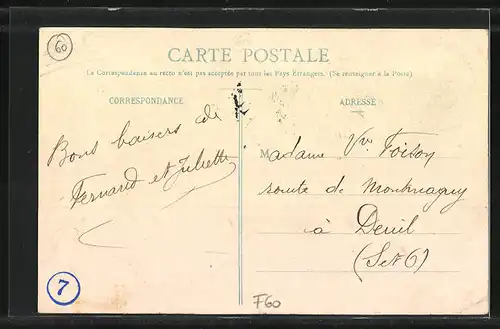 60
CARTE POSTALE
La Correspondance au recto n'est pas acceptée par tous les Pays Étrangers. (Se renseigner à la Poste)
CORRESPONDANCE
ADRESSE
Bons baisers de
Fernand et Juliette
Madame Vve Foison
route de Montmagny
à Deuil
(S et O)
7
F60